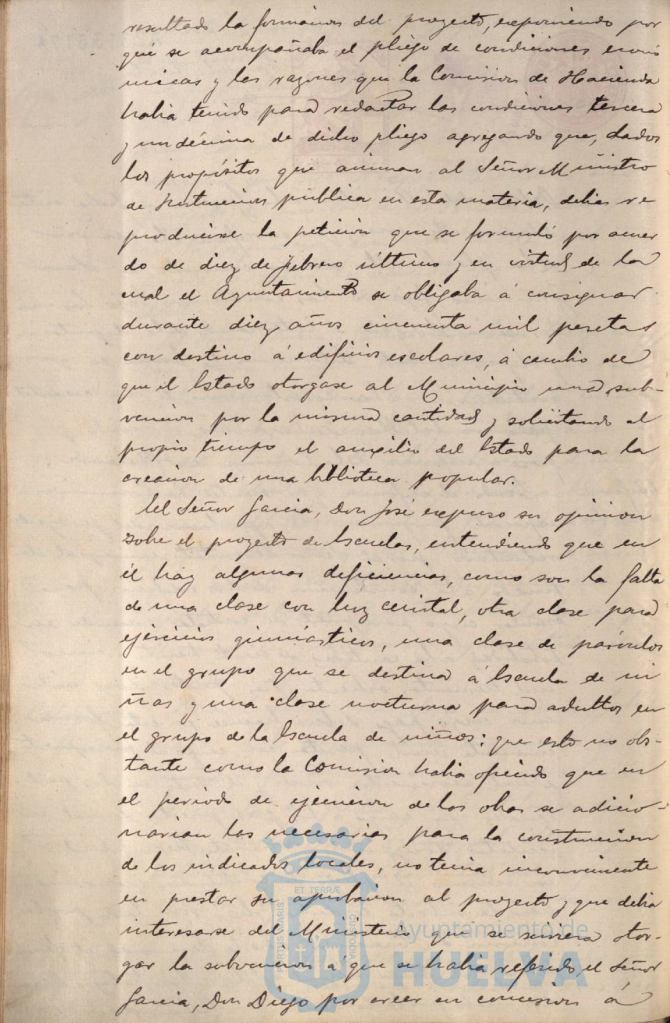 resultado la formacion del proyecto, exponiendo por
qué se acompañaba el pliego de condiciones econó
micas y las razones que la Comision de Hacienda
habia tenido para redactar las condiciones tercera
y undécima de dicho pliego agregando que, dados
los propósitos que animan al Señor Ministro
de Instruccion pública en esta materia, debia re
producirse la peticion que se formuló por acuer
do de diez de febrero último y en virtud de la
cual el Ayuntamiento se obligaba á consignar
durante diez años cincuenta mil pesetas
con destino á edificios escolares, á cambio de
que el Estado otorgase al Municipio una sub-
vencion por la misma cantidad y solicitando al
propio tiempo el auxilio del Estado para la
creacion de una biblioteca popular.
El Señor Garcia, Don José expuso su opinion
sobre el proyecto de Escuelas, entendiendo que en
él hay algunas deficiencias, como son la falta
de una clase con luz cenital, otra clase para
ejercicios gimnásticos, una clase de párvulos
en el grupo que se destina á Escuela de ni
ñas y una clase nocturna para adultos en
el grupo de la Escuela de niños: que esto no obs-
tante como la Comision habia ofrecido que en
el periodo de ejecucion de las obras se adicio-
narian las necesarias para la construccion
de los indicados locales, no tenia inconveniente
en prestar su aprobacion al proyecto y que debia
interesarse del Ministerio que se sirviera otor-
gar la subvencion á que se habia referido el Señor
Garcia, Don Diego por creer su concesion á
ET TERRÆ
PORTUS MARIS
CUSTODIA
Ayuntamiento de
HUELVA